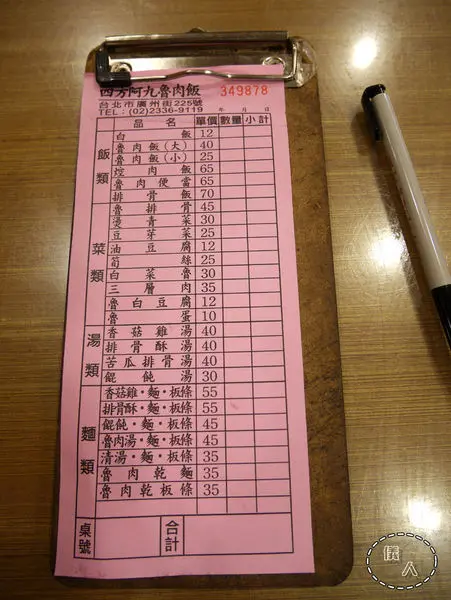 四方阿九魯肉飯 349878
台北市廣州街225號 年 月 日
TEL：(02)2336-9119
品 名 單價 數量 小計
飯類
白飯 12
魯肉飯(大) 40
魯肉飯(小) 25
焢肉飯 65
魯肉便當 65
排骨飯 70
魯排骨 45
菜類
燙青菜 30
豆芽菜 25
油豆腐 12
筍絲 25
白菜魯 30
三層肉 35
魯白豆腐 12
魯蛋 10
湯類
香菇雞湯 40
排骨酥湯 40
苦瓜排骨湯 40
餛飩湯 30
麵類
香菇雞・麵・板條 55
排骨酥・麵・板條 55
餛飩・麵・板條 45
魯肉湯・麵・板條 45
清湯・麵・板條 35
魯肉乾麵 35
魯肉乾板條 35
桌號 合計
儀人